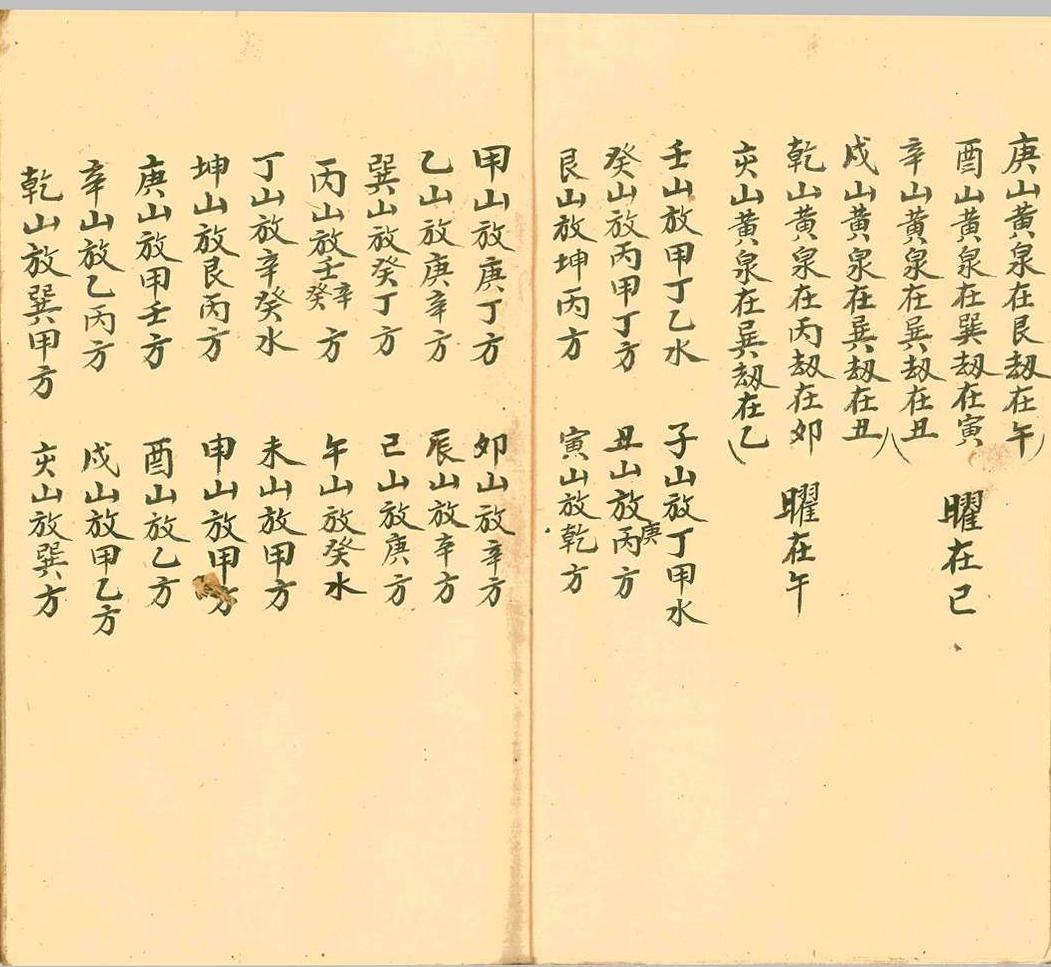 庚山黄泉在艮劫在午
酉山黄泉在巽劫在寅 曜在巳
辛山黄泉在巽劫在丑
戌山黄泉在巽劫在丑
乾山黄泉在丙劫在卯 曜在午
亥山黄泉在巽劫在乙
壬山放甲丁乙水 子山放丁甲水
癸山放丙甲丁方 丑山放丙庚方
艮山放坤丙方 寅山放乾方
甲山放庚丁方 卯山放辛方
乙山放庚辛方 辰山放辛方
巽山放癸丁方 巳山放庚方
丙山放壬辛癸方 午山放癸水
丁山放辛癸水 未山放甲方
坤山放艮丙方 申山放甲方
庚山放甲壬方 酉山放乙方
辛山放乙丙方 戌山放甲乙方
乾山放巽甲方 亥山放巽方